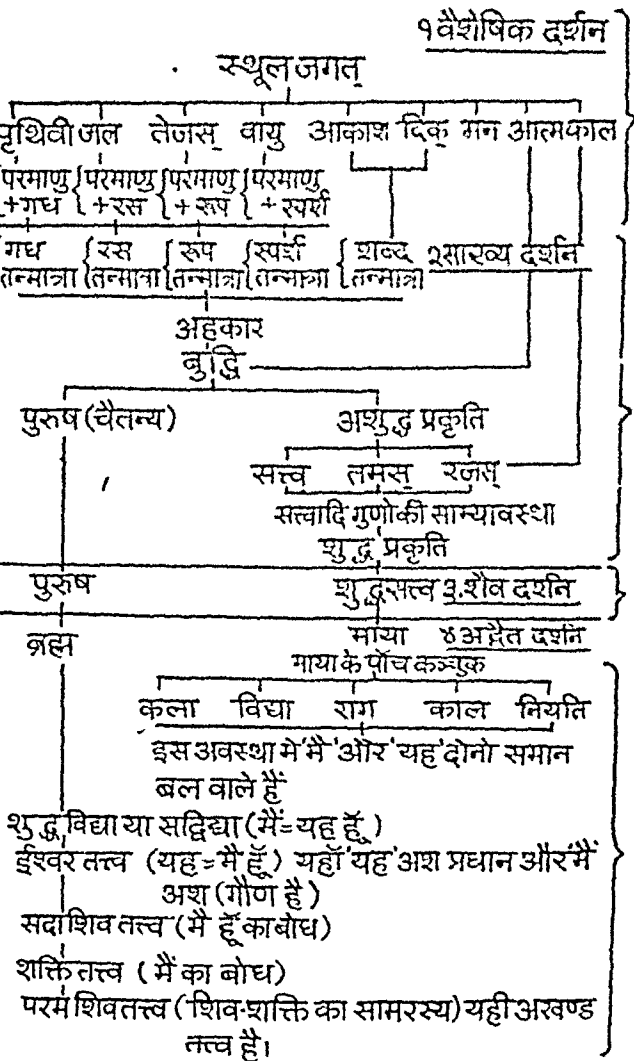 १ वैशेषिक दर्शन
स्थूल जगत्
पृथिवी जल तेजस् वायु आकाश दिक् मन आत्म काल
परमाणु {परमाणु {परमाणु {परमाणु
+गध {+रस {+रूप {+स्पर्श
गध {रस {रूप {स्पर्श {शब्द २साख्य दर्शन
तन्मात्रा {तन्मात्रा {तन्मात्रा {तन्मात्रा {तन्मात्रा
अहकार
बुद्धि
पुरुष (चैतन्य) अशुद्ध प्रकृति
सत्त्व तमस् रजस्
सत्त्वादि गुणोकी साम्यावस्था
शुद्ध प्रकृति
पुरुष शुद्धसत्त्व ३.शैव दर्शन
ब्रह्म माया ४अद्वैत दर्शन
माया के पॉच कञ्चुक
कला विद्या राग काल नियति
इस अवस्था मे 'मै' और 'यह' दोनो समान
बल वाले हैं
शुद्ध विद्या या सद्विद्या (मैं=यह हूँ)
ईश्वर तत्त्व (यह=मै हूँ) यहाँ 'यह' अश प्रधान और 'मैं'
अश (गौण है)
सदाशिव तत्त्व (मै हूँ का बोध)
शक्ति तत्त्व (मैं का बोध)
परम शिवतत्त्व (शिव-शक्ति का सामरस्य) यही अखण्ड
तत्त्व है।